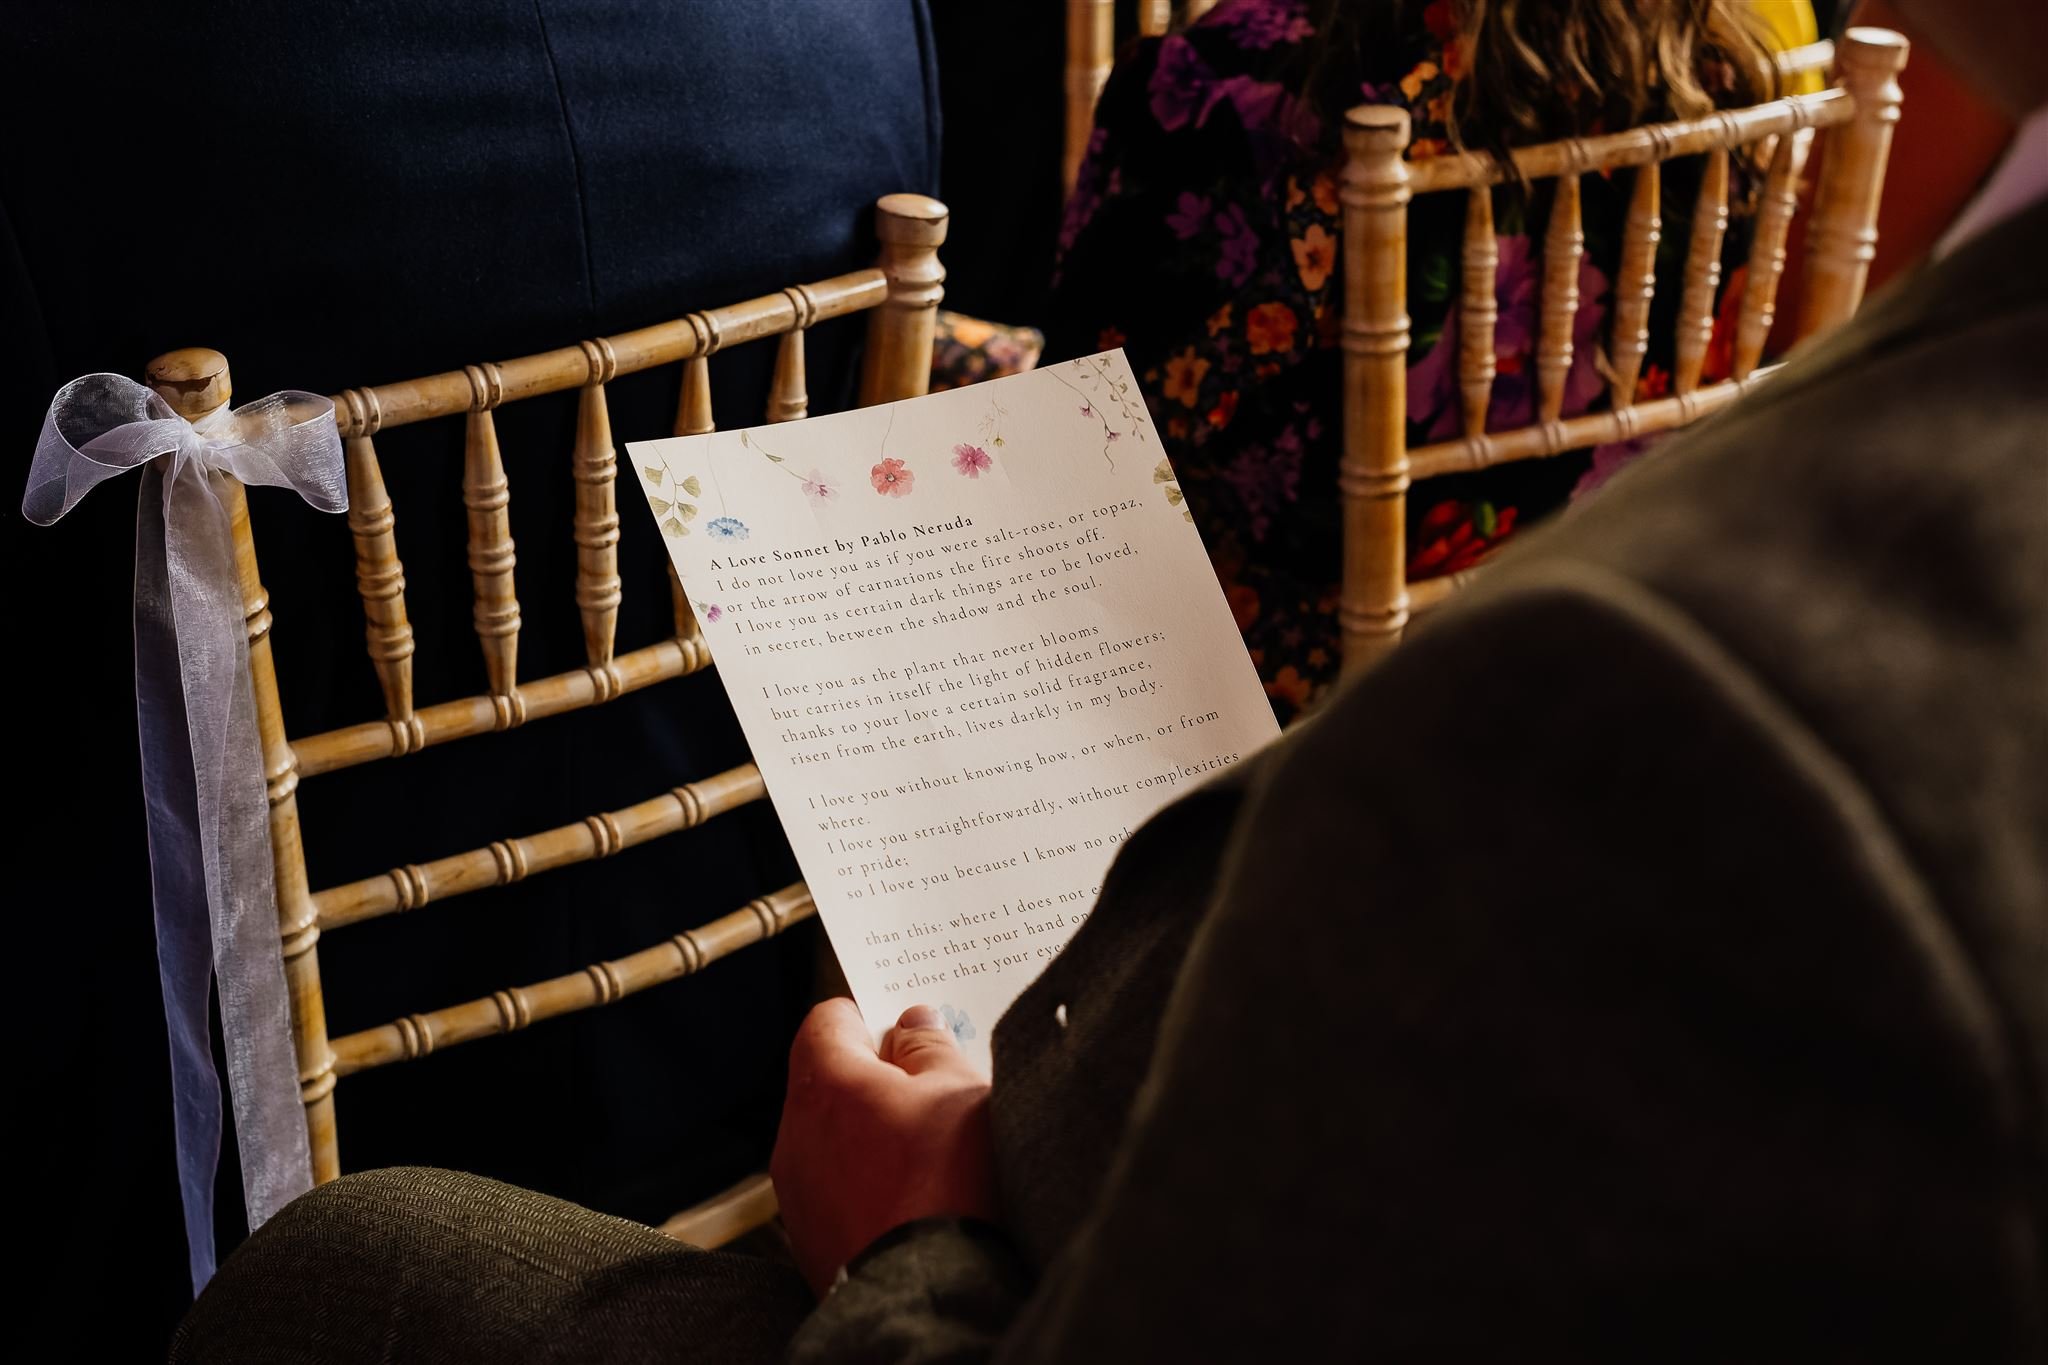 A Love Sonnet by Pablo Neruda
I do not love you as if you were salt-rose, or topaz,
or the arrow of carnations the fire shoots off.
I love you as certain dark things are to be loved,
in secret, between the shadow and the soul.
I love you as the plant that never blooms
but carries in itself the light of hidden flowers;
thanks to your love a certain solid fragrance,
risen from the earth, lives darkly in my body.
I love you without knowing how, or when, or from
where.
I love you straightforwardly, without complexities
or pride;
so I love you because I know no
than this: where I does not
so close that your hand
so close that your